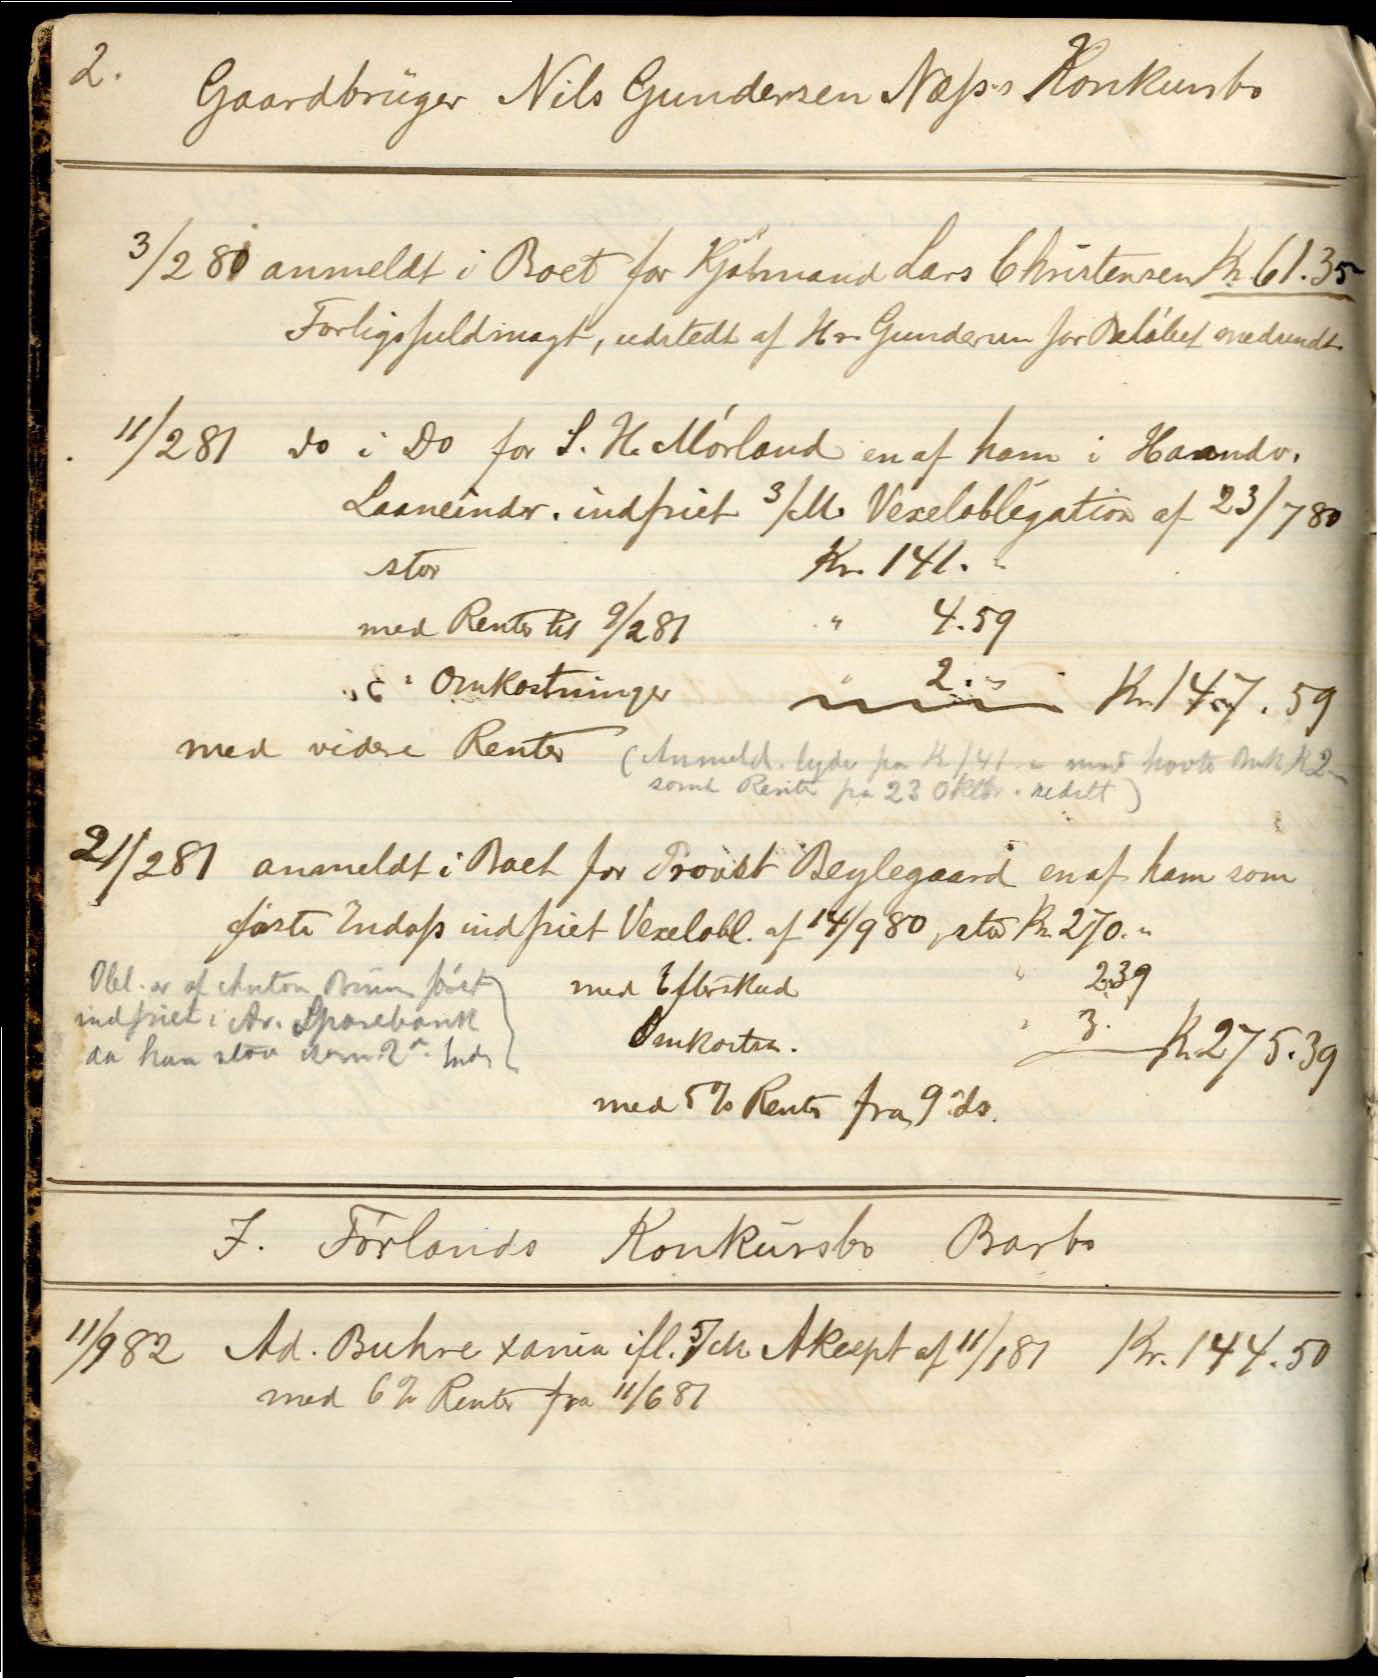 2.
Gaardbrüger Nils Gundersen Næss's Konkursbo
3/2 81 anmeldt i Boet for Kjøbmand Lars Christensen Kr 61.35
Forligsfuldmagt, udstedt af Hr Gundersen for Beløbet medsendt.
11/2 81 do i Do for S. H. Mórland en af ham i Haandv.
Laaneindr. indfriet 3/M. Vexelobligation af 23/7 80
stor Kr. 141. "
med Renter til 9/2 81 " 4.59
" Omkostninger " 2. " Kr 147.59
med videre Renter (Anmeld. lyder paa Kr 141 " med havte Omk K 2
samt Renter fra 23 Oktbr. )
21/2 81 anmeldt i Boet for Provst Beylegaard en af ham som
første Endoss indfriet Vexelobl. af 14/9 80, stor Kr. 270. "
Obl. er af Anton Bruun først
indfriet i Ar. Sparebank
da han stod som 2n. Ind.
med Efterskud " 2.39
Omkostn. " 3. Kr. 275.39
med 5% Renter fra 9 ds.
J. Fórlands Konkürsbo Barbo
11/9 82 Ad. Buhre Xania ifl. 5/M. Akcept af 11/1 81 Kr. 144.50
med 6% Renter fra 11/6 81